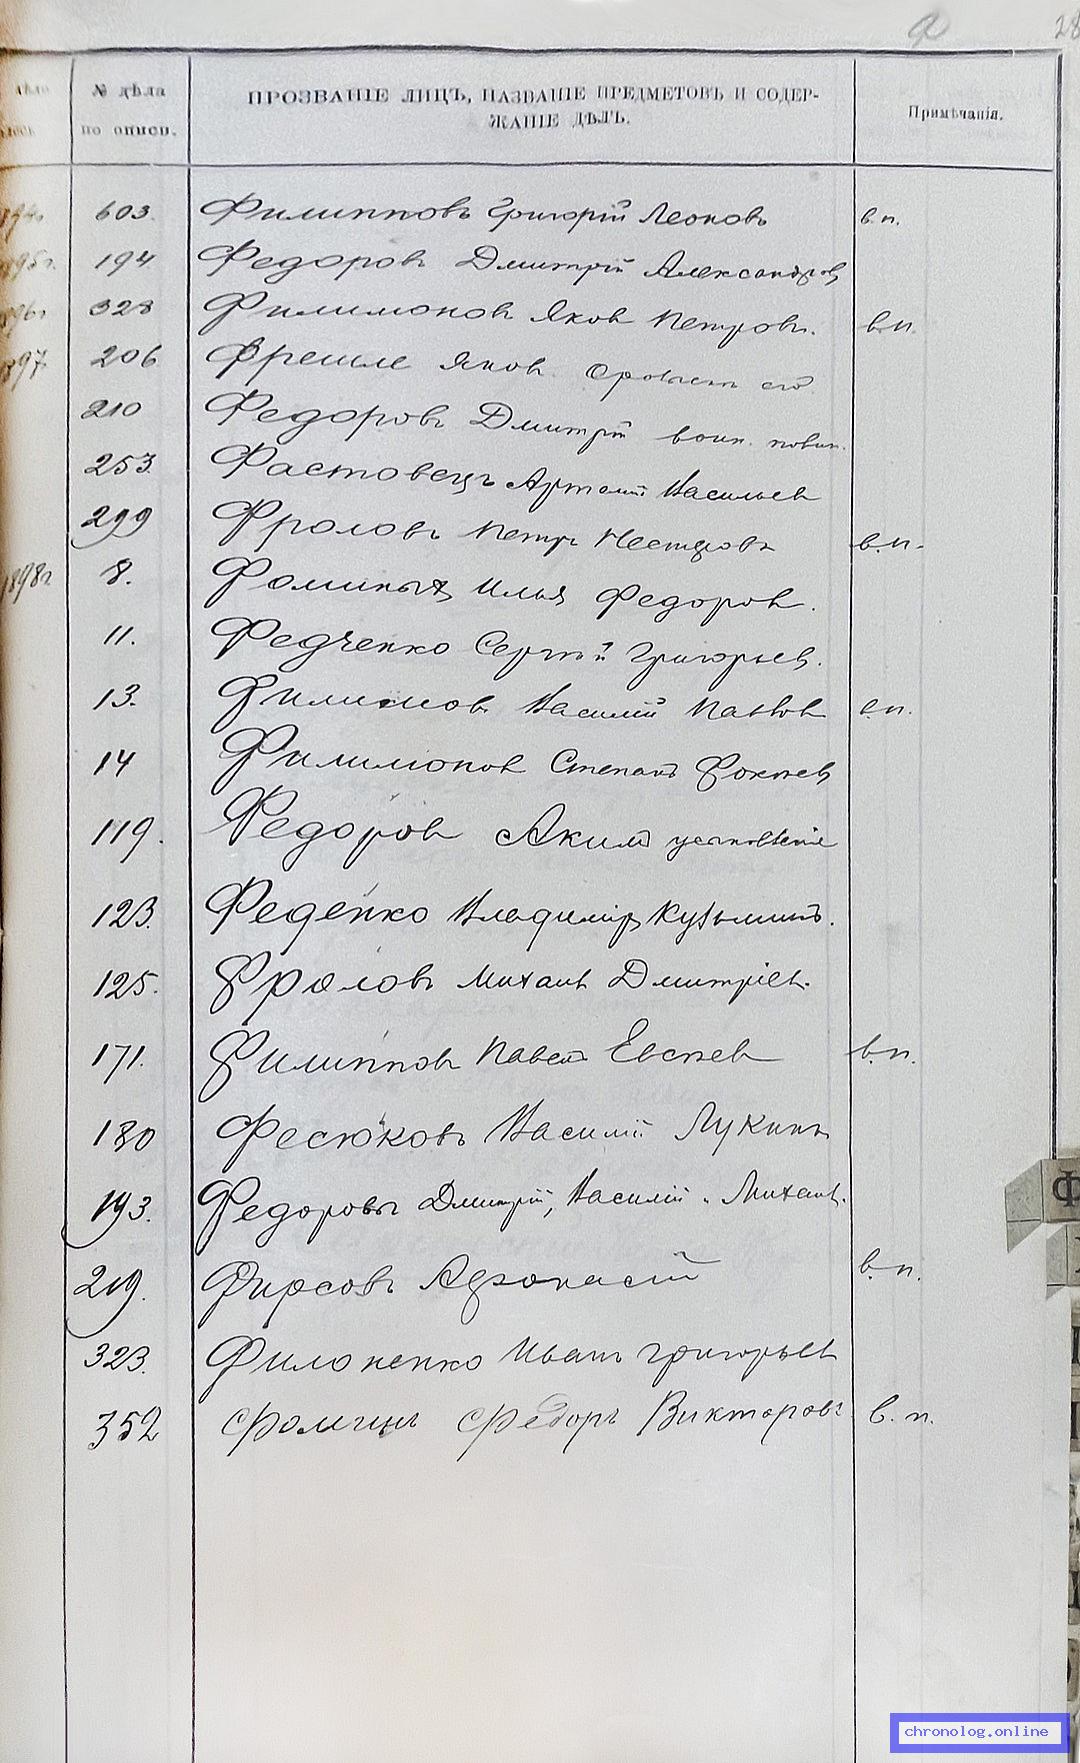 Ф 28
№ дѣла по описи.
ПРОЗВАНІЕ ЛИЦЪ, НАЗВАНІЕ ПРЕДМЕТОВЪ И СОДЕР-
ЖАНІЕ ДѢЛЪ.
Примѣчанія.
603. Филипповъ Григорій Леоновъ в.п.
1895г. 194 Федоровъ Дмитрій Александров
1896г 328 Филимонов Яков Петровъ. в.п.
1897 206 Яков
210 Федоровъ Дмитрій воин. повин.
253. Фастовецъ Артемій Васильев
299 Фроловъ Петръ Нестеровъ в.п.
1898г. 8. Фоминых Илья Федоров.
11. Федченко Сергѣй Григорьев.
13. Филимонов Василій Павлов в.п.
14 Филимонов Степанъ Фокеев
119. Федоров Акимъ
123. Феденко Владиміръ Кузьминъ.
125. Фроловъ Михаил Дмитріев.
171. Филиппов Павел Евсеев в.п.
180 Фесюковъ Василій Лукинъ
193. Федоровы Дмитрій, Василій и Михаил.
219. Фирсовъ Афонасій в.п.
323. Филоненко Иванъ Григорьев
352 Фомин Федоръ Викторовъ в.п.
Ф
chronolog.online